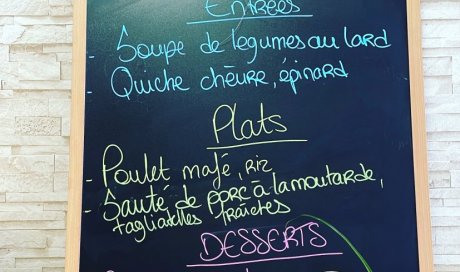 Entrées
- Soupe de légumes au lard
- Quiche chèvre, épinard
Plats
- Poulet mafé, riz
- Sauté de porc à la moutarde,
tagliatelles fraîches
DESSERTS